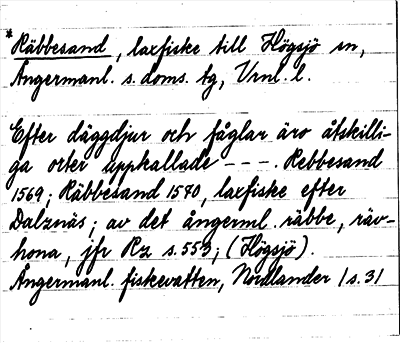 *Räbbesand, laxfiske till Högsjö sn,
Ångermanl. s. doms. tg, Vrnl. l.
Efter däggdjur och fåglar äro åtskilli-
ga orter upphallade - - -. Rebbesand
1569; Räbbesand 1570, laxfiske efter
Dalznäs; av det ångerml. räbbe, räv-
hona, jfr Rz s. 553; (Högsjö).
Ångermanl. fiskevatten, Nordlander 1 s. 31